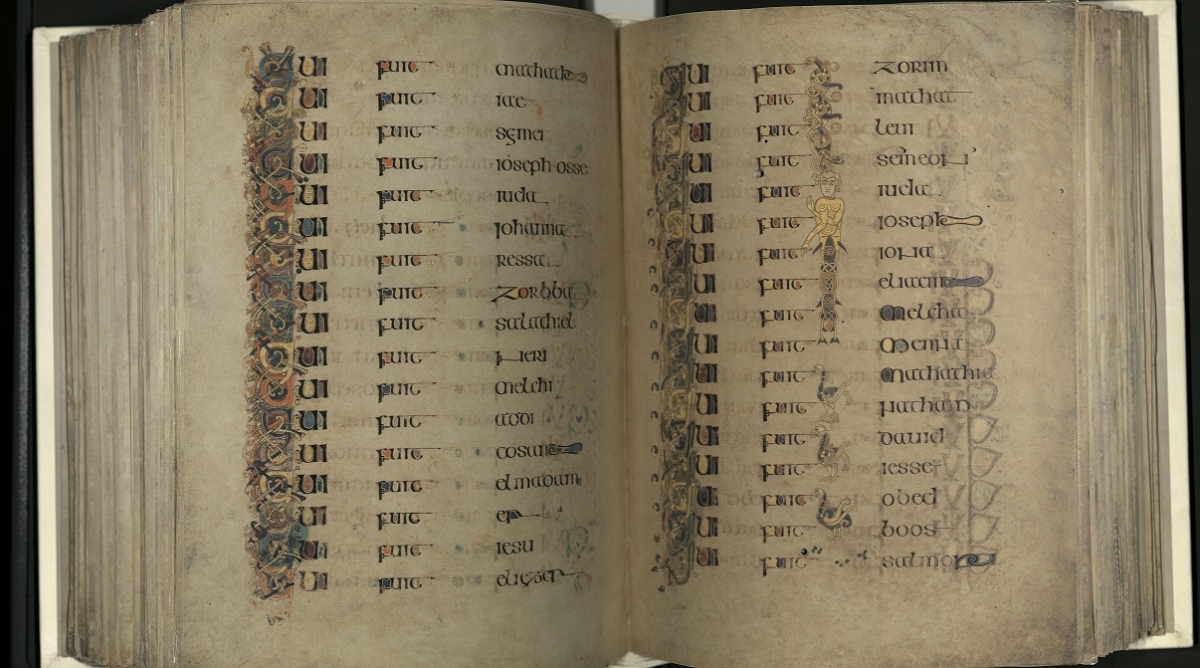 UI fuit mathath
UI fuit iae
UI fuit semei
UI fuit ioseph osse
UI fuit iuda
UI fuit iohanna
UI fuit ressa
UI fuit zorbba
UI fuit salathiel
UI fuit neri
UI fuit melchi
UI fuit addi
UI fuit cosam
UI fuit elmadam
UI fuit er
UI fuit iesu
UI fuit eliezer
UI fuit zorim
UI fuit mathat
UI fuit leui
UI fuit semeon
UI fuit iuda
UI fuit ioseph
UI fuit iona
UI fuit eliacim
UI fuit melcha
UI fuit menna
UI fuit mathathia
UI fuit nathan
UI fuit dauid
UI fuit iesse
UI fuit obed
UI fuit boos
UI fuit salmon